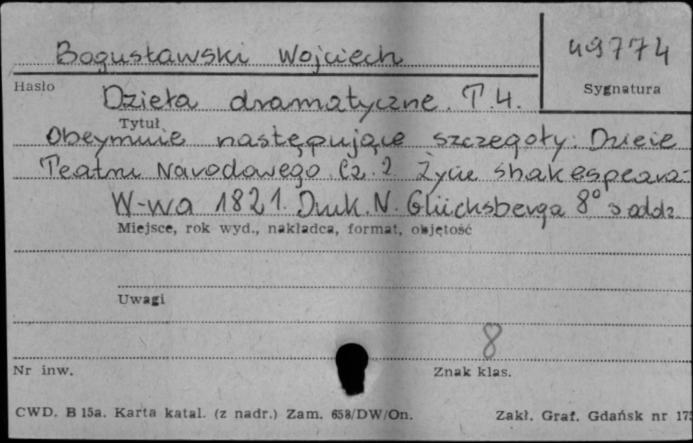 Bogusławski Wojciech
49774
Hasło
Sygnatura
Dzieła dramatyczne. T. 4.
Tytuł
Obeymuie następujące szczegoły: Dzieie
Teatru Narodowego Cz. 2 Życie Shakespeara
W-wa 1821. Druk. N. Glücksberga 8° s oddz.
Miejsce, rok wyd., nakładca, format, objętość
Uwagi
8
Nr inw.
Znak klas.
CWD. B 15a. Karta katal. (z nadr.) Zam. 658/DW/On.
Zakł. Graf. Gdańsk nr